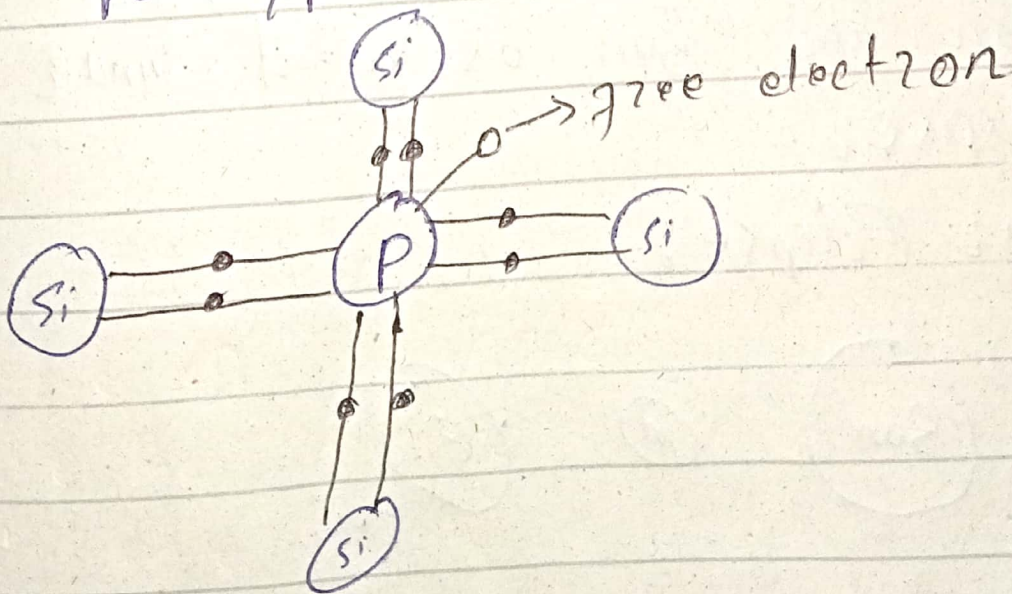 Si
free electron
P
Si
Si
Si